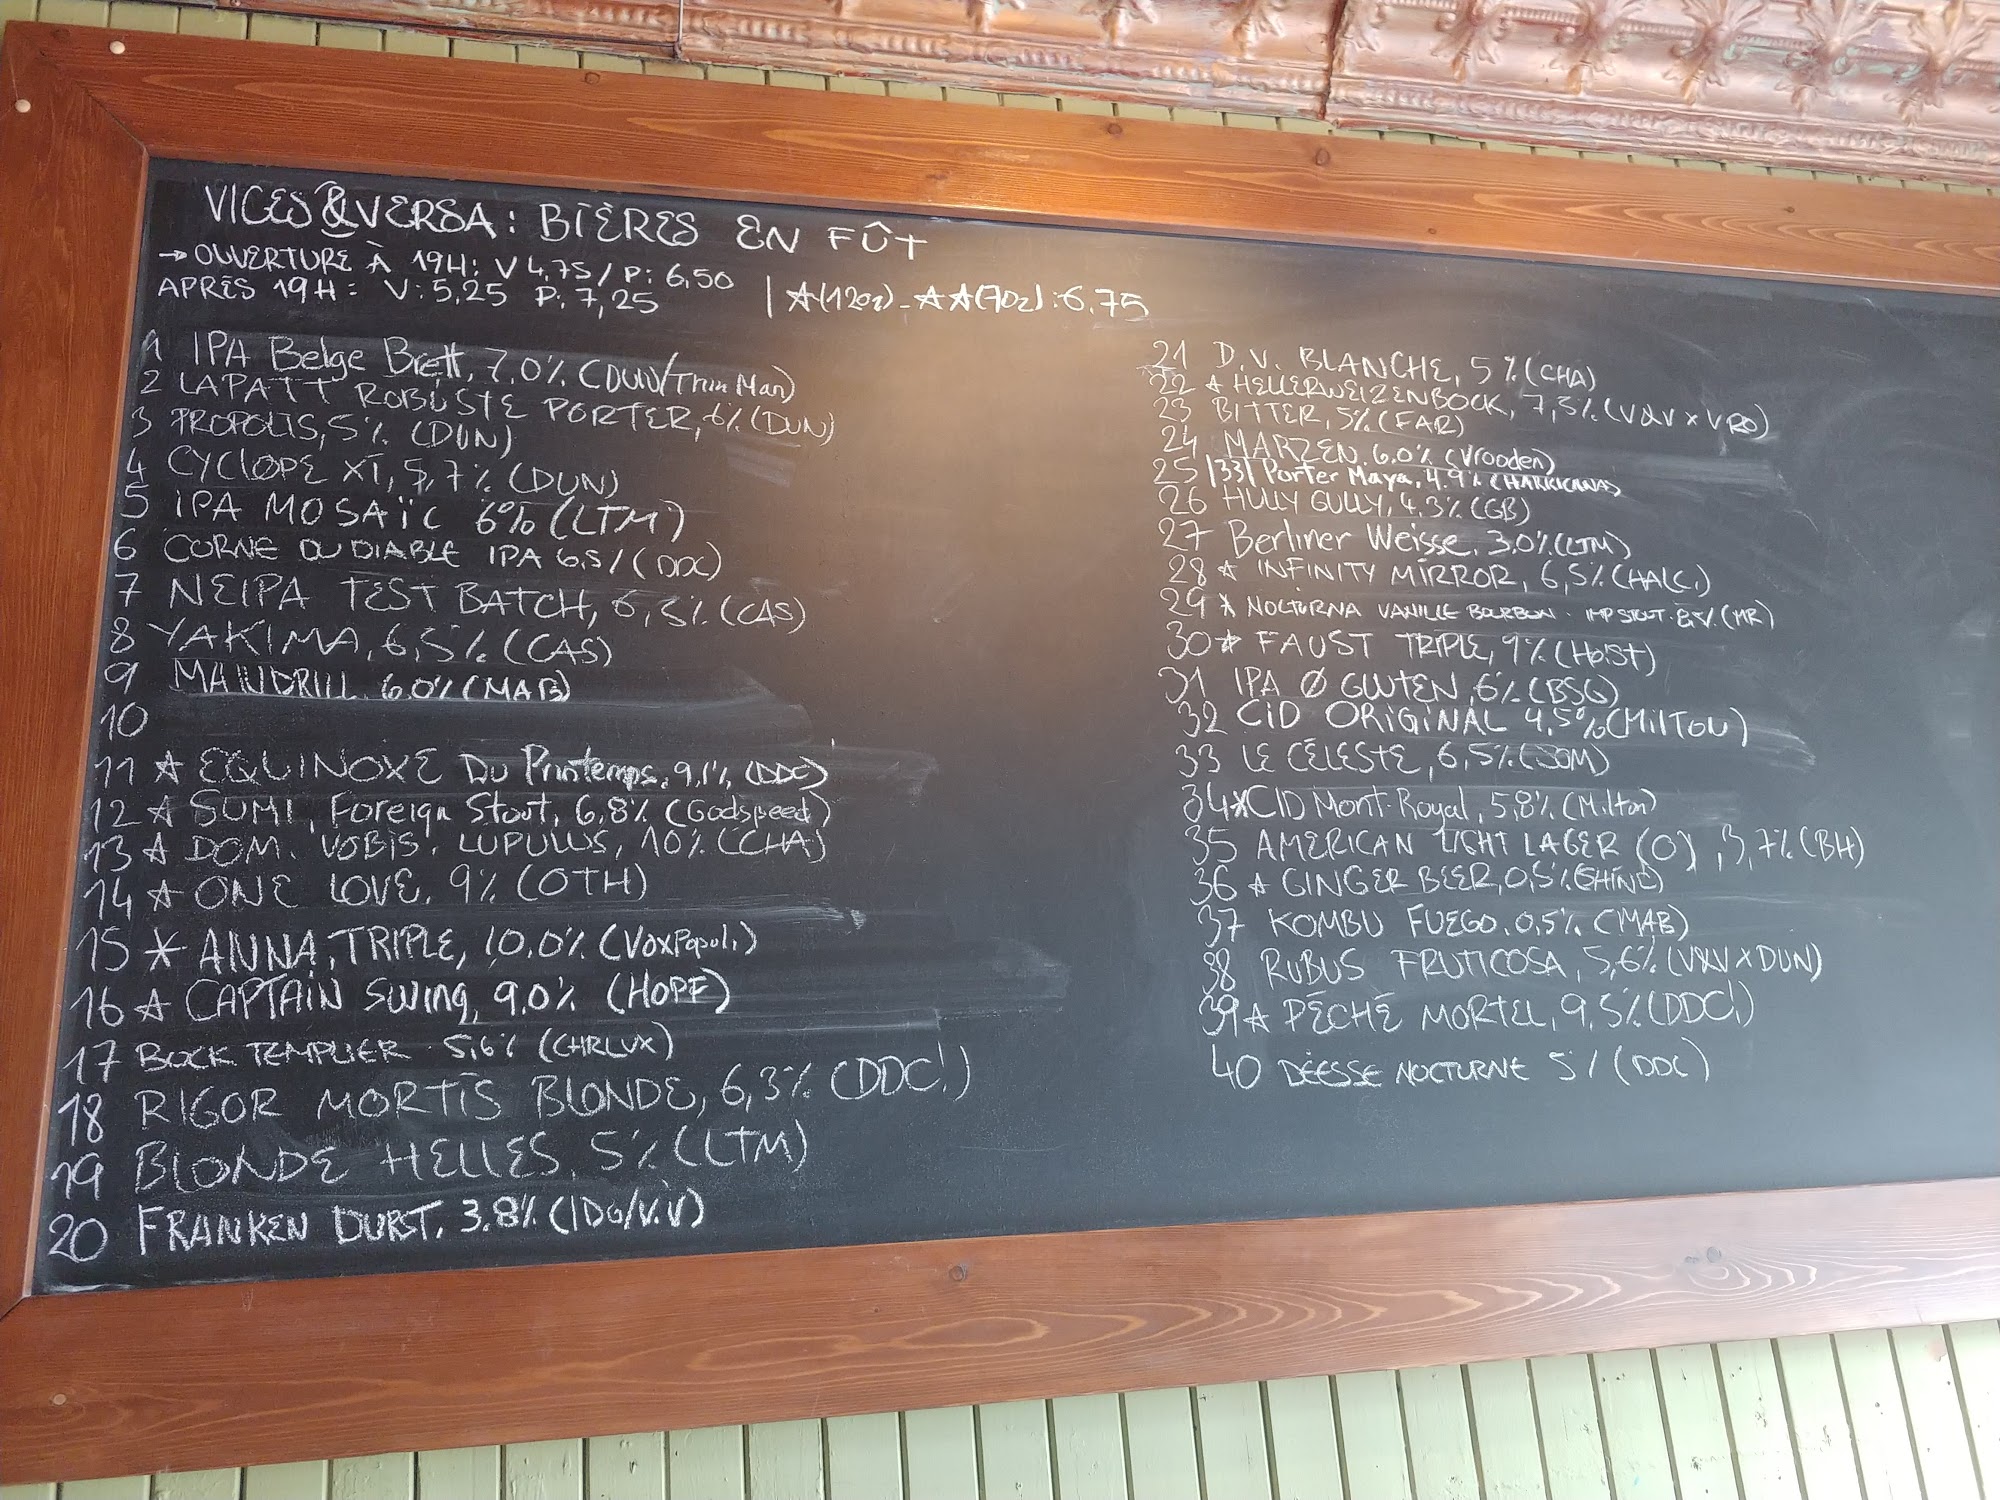 VICES & VERSA : BIÈRES EN FÛT
→ OUVERTURE À 19H: V 4,75 / P: 6,50
APRÈS 19H: V: 5,25 P: 7,25 | ☆(12oz) - ☆☆(7oz): 6.75
1 IPA Belge Brett, 7,0% (DUN/Thin Man)
2 LAPATT ROBUSTE PORTER, 6% (DUN)
3 PROPOLIS, 5% (DUN)
4 CYCLOPE XI, 5,7% (DUN)
5 IPA MOSAÏC 6% (LTM)
6 CORNE DU DIABLE IPA 6,5% (DDC)
7 NEIPA TEST BATCH, 6,5% (CAS)
8 YAKIMA, 6,5% (CAS)
9 MANDRILL, 6,0% (MAB)
10
11 ☆ EQUINOXE Du Printemps, 9,1%, (DDC)
12 ☆ SUMI, Foreign Stout, 6,8% (Godspeed)
13 ☆ DOM. VOBIS. LUPULUS, 10% (CHA)
14 ☆ ONE LOVE, 9% (OTH)
15 * ANNA, TRIPLE, 10,0% (VoxPopuli)
16 ☆ CAPTAIN Swing, 9,0% (HOPF)
17 BOCK TEMPLIER 5,6% (CHRLVX)
18 RIGOR MORTIS BLONDE, 6,3% (DDC!)
19 BLONDE HELLES, 5% (LTM)
20 FRANKEN DURST, 3.8% (IDG/V.V)
21 D.V. BLANCHE, 5% (CHA)
22 ☆ HELLERWEIZENBOCK, 7,5% (V&V x VRO)
23 BITTER, 5% (FAR)
24 MARZEN, 6,0% (Vrooden)
25 |33| Porter Maya, 4.9% (HARRICANA)
26 HULLY GULLY, 4,3% (GB)
27 Berliner Weisse, 3,0% (LTM)
28 ☆ INFINITY MIRROR, 6,5% (HALC.)
29 ☆ NOCTURNA VANILLE BOURBON IMP STOUT (MR)
30 ☆ FAUST TRIPLE, 9% (Hoist)
31 IPA Ø GLUTEN, 6% (BSG)
32 CID ORIGINAL 4,5% (MILTOU)
33 LE CÉLESTE, 6,5% (SOM)
34 ☆ CID Mont-Royal, 5,8% (Milton)
35 AMERICAN LIGHT LAGER (O), 3,7% (BH)
36 ☆ GINGER BEER, 0,5% (SHINE)
37 KOMBU FUEGO, 0,5% (MAB)
38 RUBUS FRUTICOSA, 5,6% (V&V x DUN)
39 ☆ PÉCHÉ MORTEL, 9,5% (DDC!)
40 DÉESSE NOCTURNE 5% (DDC)